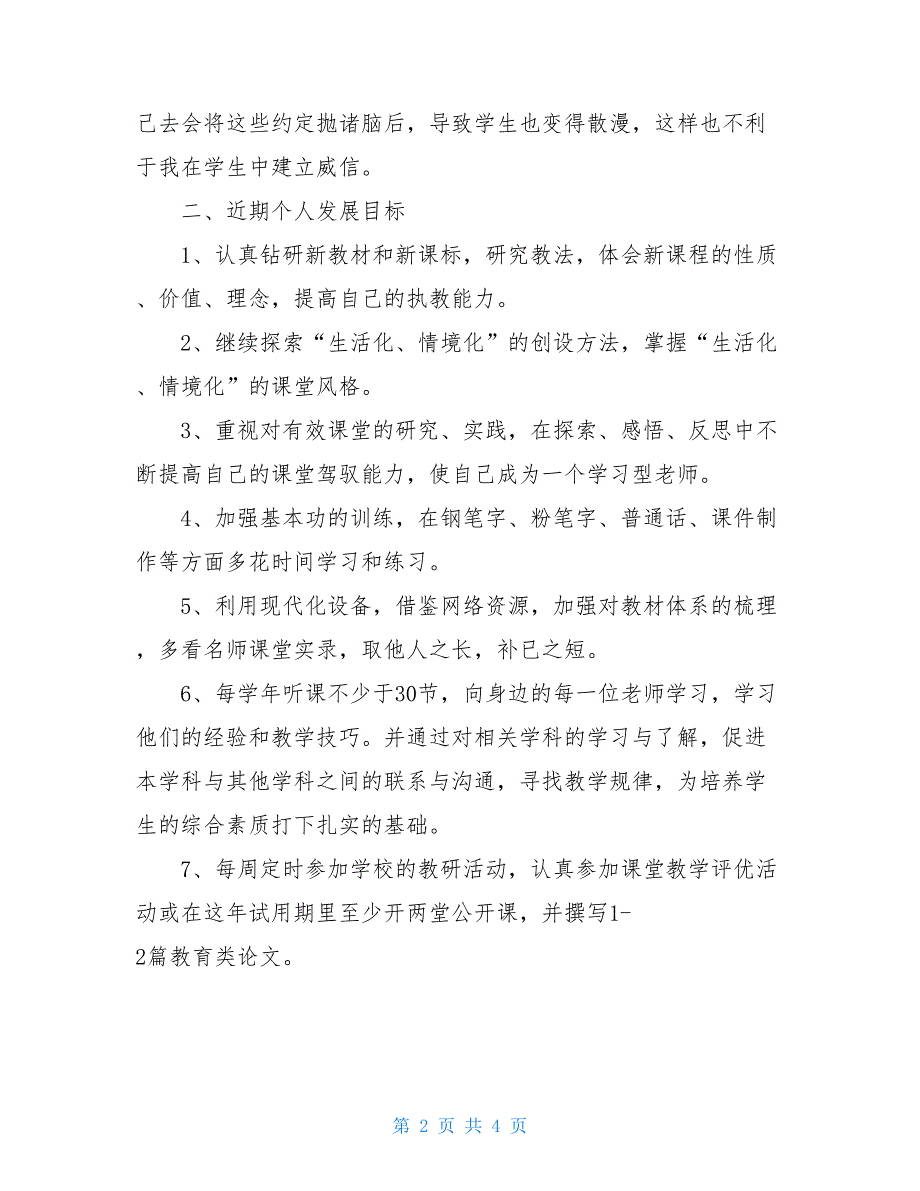 己去会将这些约定抛诸脑后，导致学生也变得散漫，这样也不利
于我在学生中建立威信。
二、近期个人发展目标
1、认真钻研新教材和新课标，研究教法，体会新课程的性质
、价值、理念，提高自己的执教能力。
2、继续探索“生活化、情境化”的创设方法，掌握“生活化
、情境化”的课堂风格。
3、重视对有效课堂的研究、实践，在探索、感悟、反思中不
断提高自己的课堂驾驭能力，使自己成为一个学习型老师。
4、加强基本功的训练，在钢笔字、粉笔字、普通话、课件制
作等方面多花时间学习和练习。
5、利用现代化设备，借鉴网络资源，加强对教材体系的梳理
，多看名师课堂实录，取他人之长，补已之短。
6、每学年听课不少于30节，向身边的每一位老师学习，学习
他们的经验和教学技巧。并通过对相关学科的学习与了解，促进
本学科与其他学科之间的联系与沟通，寻找教学规律，为培养学
生的综合素质打下扎实的基础。
7、每周定时参加学校的教研活动，认真参加课堂教学评优活
动或在这年试用期里至少开两堂公开课，并撰写1-
2篇教育类论文。
第 2 页 共 4 页